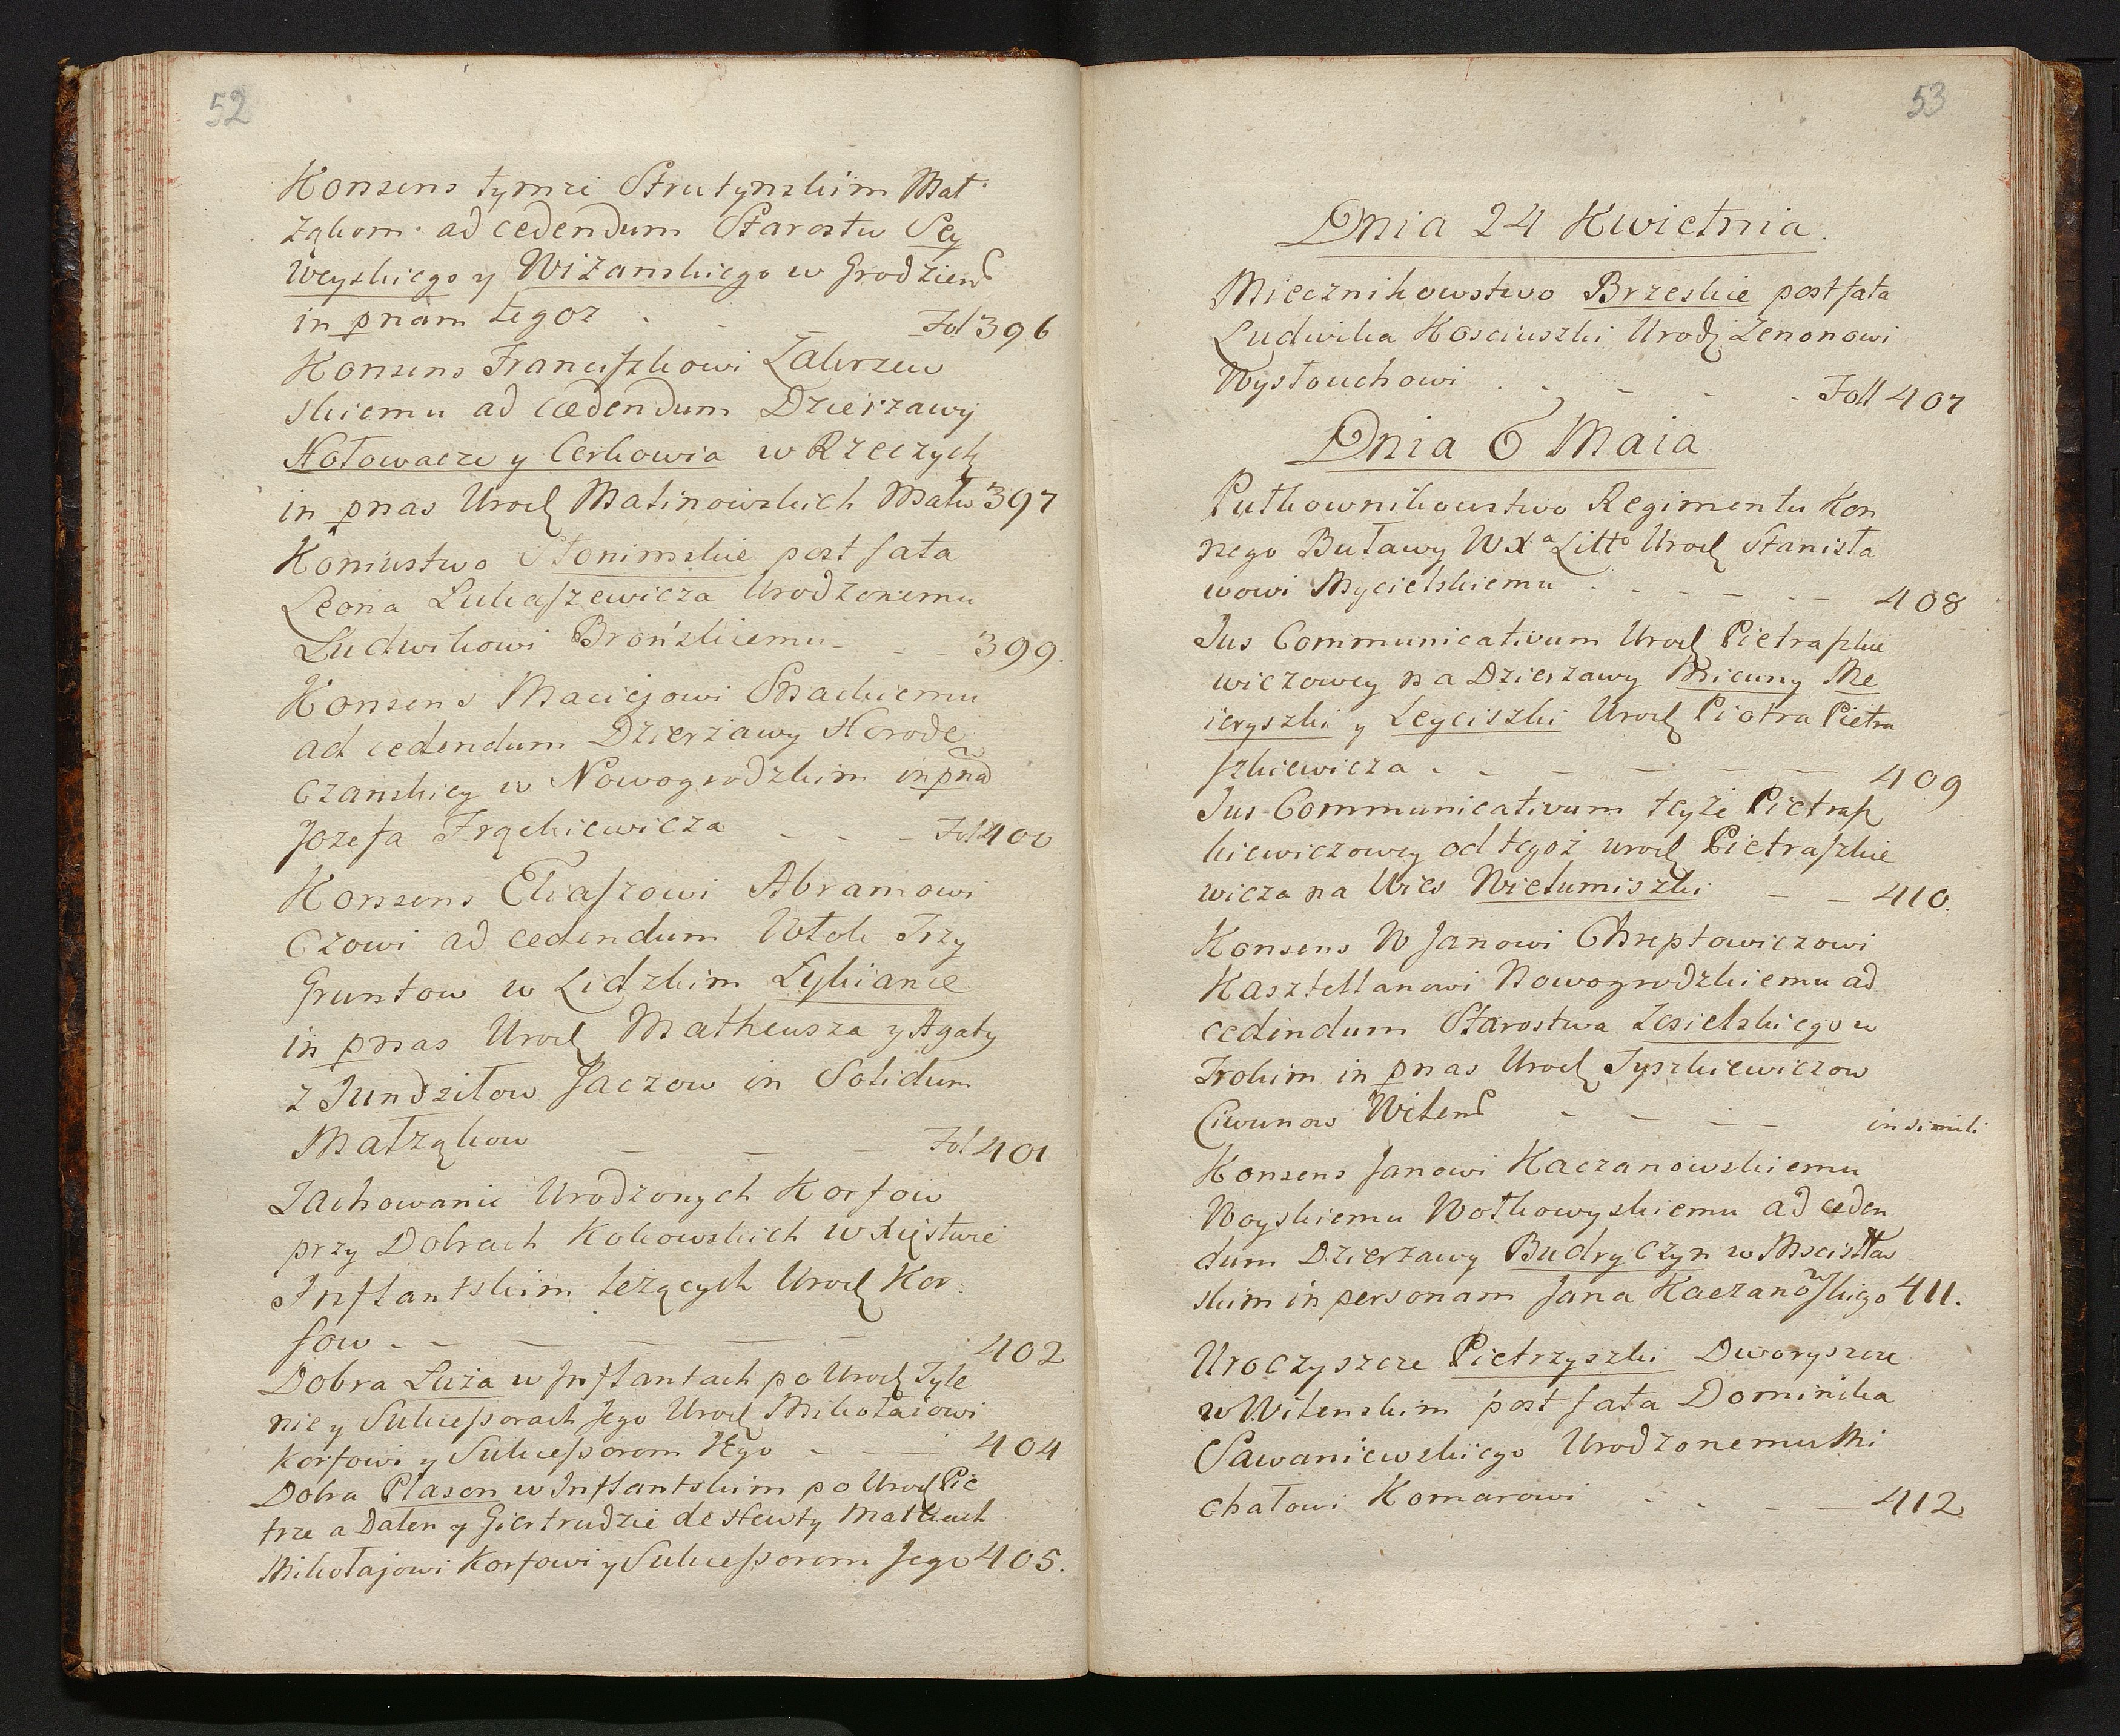 52
Konsens tymże Strutynskim Mał
żąkom ad cedendum Starostw Sey
weyskiego y Wiżanskiego w Grodzień
in pnam tegoż Fol 396
Konsens Franciszkowi Zakrzew
skiemu ad cædendum Dzierżawy
Hołowacze y Cerkowia w Rzeczyck
in pnas Urod Malinowskich Małż 397
Koniustwo Słonimskie post fata
Leona Lukaszewicza Urodzonemu
Ludwikowi Brońskiemu 399.
Konsens Maciejowi Snackiemu
ad cedendum Dzierżawy Horode
czanskiey w Nowogrodzkim in pnã
Jozefa Frąckiewicza Fol 400
Konsens Eliaszowi Abramowi
czowi ad cedendum Włok Trzy
Gruntow w Lidzkim Łykiance
in pnas Urod Matheusza y Agaty
z Jundziłow Jaczow in Solidum
Małżąkow Fol 401
Zachowanie Urodzonych Korfow
przy Dobrach Kokowskich w Xięstwie
Inflantskim leżących Urod Kor
fow 402
Dobra Luża w Inflantach po Urod Tyle
nie y Sukcessorach Jego Urod Mikołaiowi
Korfowi y Sukcessorom Jego 404
Dobra Plason w Inflantskim po Urod Pie
trze a Dalen y Giertrudzie de Hewty Małżach
Mikołajowi Korfowi y Sukcessorom Jego 405.
53
Dnia 24 Kwietnia
Miecznikowstwo Brzeskie post fata
Ludwika Kosciuszki Urodz Zenonowi
Wysłouchowi Foll 407
Dnia 6 Maia
Pułkownikowstwo Regimentu Kon
nego Buławy W Xa Litto Urod Stanisła
wowi Mycielskiemu 408
Jus Communicativum Urod Pietraszkie
wiczowey na Dzierżawy Micuny Me
ieryszki y Leyciszki Urod Piotra Pietra
szkiewicza 409
Jus Communicativum teyże Pietrasz
kiewiczowey od tegoż Urod Pietraszkie
wicza na Wies Wielumiszki 410.
Konsens W Janowi Chreptowiczowi
Kasztellanowi Nowogrodzkiemu ad
cedendum Starostwa Zesielskiego w
Trokim in pnas Urod Tyszkiewiczow
Ciwunow Wilens in simili
Konsens Janowi Kaczanowskiemu
Woyskiemu Wołkowyskiemu ad ceden
dum Dzierżawy Budry Czyn w Mscisław
skim in personam Jana Kaczanowskiego 411.
Uroczyszcze Pietrzyszki Dworyszcze
w Wilenskim post fata Dominika
Sawaniewskiego Urodzonemu Mi
chałowi Komarowi 412